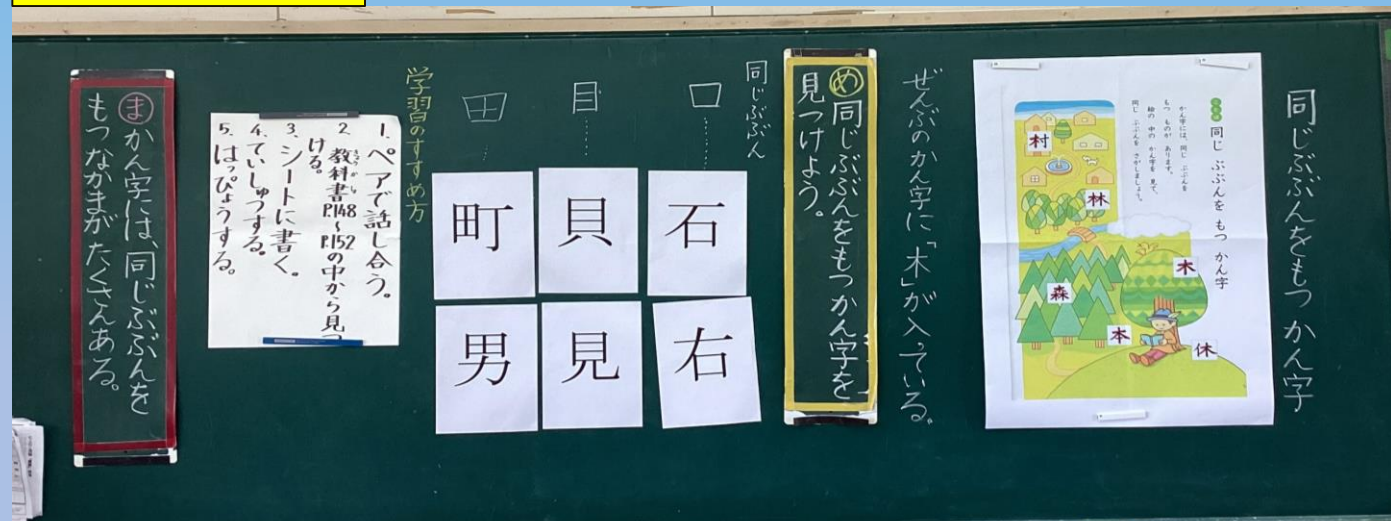 同じぶぶんをもつかん字
同じ ぶぶんを もつ かん字
かん字には、同じ ぶぶんを
もつ ものが あります。
絵の 中の かん字を 見て、
同じ ぶぶんを さがしましょう。
村
林
木
森
本
休
ぜんぶのかん字に「木」が入っている。
め 同じぶぶんをもつかん字を
見つけよう。
同じぶぶん
口……
石
右
目……
貝
見
田…
町
男
学習のすすめ方
1. ペアで話し合う。
2. 教科書P.148～P.152の中から見つ
ける。
3. シートに書く。
4. ていしゅつする。
5. はっぴょうする。
ま かん字には、同じぶぶんを
もつなかまがたくさんある。